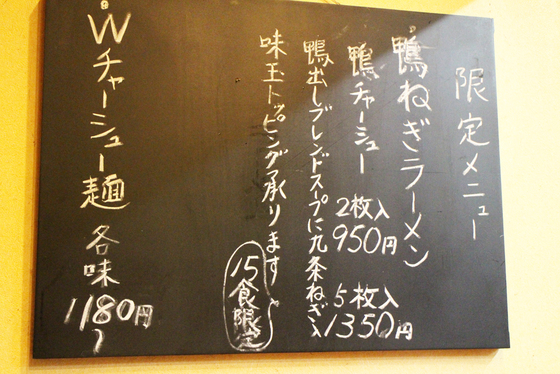 限定メニュー
鴨ねぎラーメン
鴨チャーシュー
2枚入
950円
5枚入
1350円
鴨出しブレンドスープに九条ねぎ入
味玉トッピング承ります
15食限定
Wチャーシュー麺 各味
1180円
〜